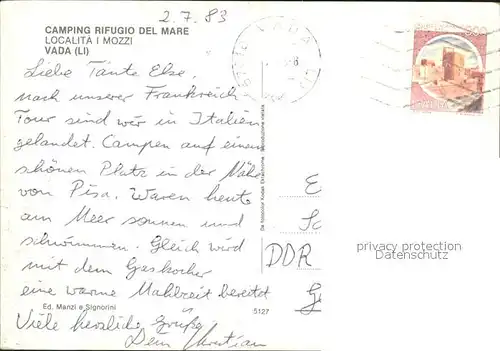 2.7.83
CAMPING RIFUGIO DEL MARE
LOCALITÀ I MOZZI
VADA (LI)
Liebe Tante Else,
nach unserer Frankreich-
Tour sind wir in Italien
gelandet. Campen auf einem
schönen Platz in der Nähe
von Pisa. Waren heute
am Meer sonnen und
schwimmen. Gleich wird
mit dem Gaskocher
eine warme Mahlzeit bereitet
Ed. Manzi e Signorini
5127
Viele herzliche Grüße
Dein Christian
Da fotocolor Kodak Ektachrome
DDR
privacy protection
Datenschutz